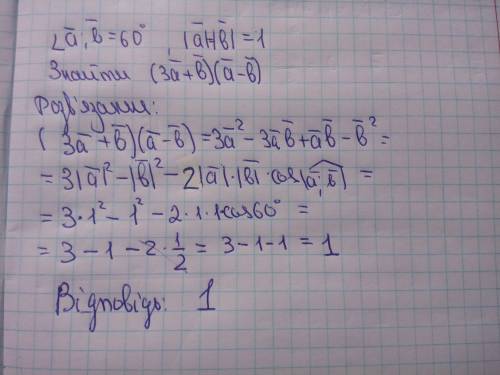 ∠a̅;b̅=60° , |a̅|=|b̅|=1
Знайти (3a̅+b̅)(a̅-b̅)
Розв'язання:
(3a̅+b̅)(a̅-b̅)=3a̅²-3a̅b̅+a̅b̅-b̅²=
=3|a̅|²-|b̅|²-2|a̅|·|b̅|·cos|a̅;b̅| =
=3·1²-1²-2·1·1cos60° =
=3-1-2·1/2= 3-1-1=1
Відповідь: 1